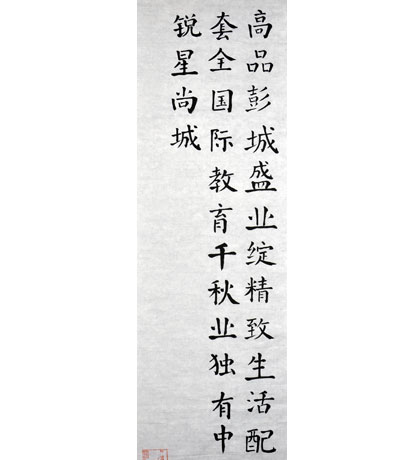 高品彭城盛业绽精致生活配
套全国际教育千秋业独有中
锐星尚城